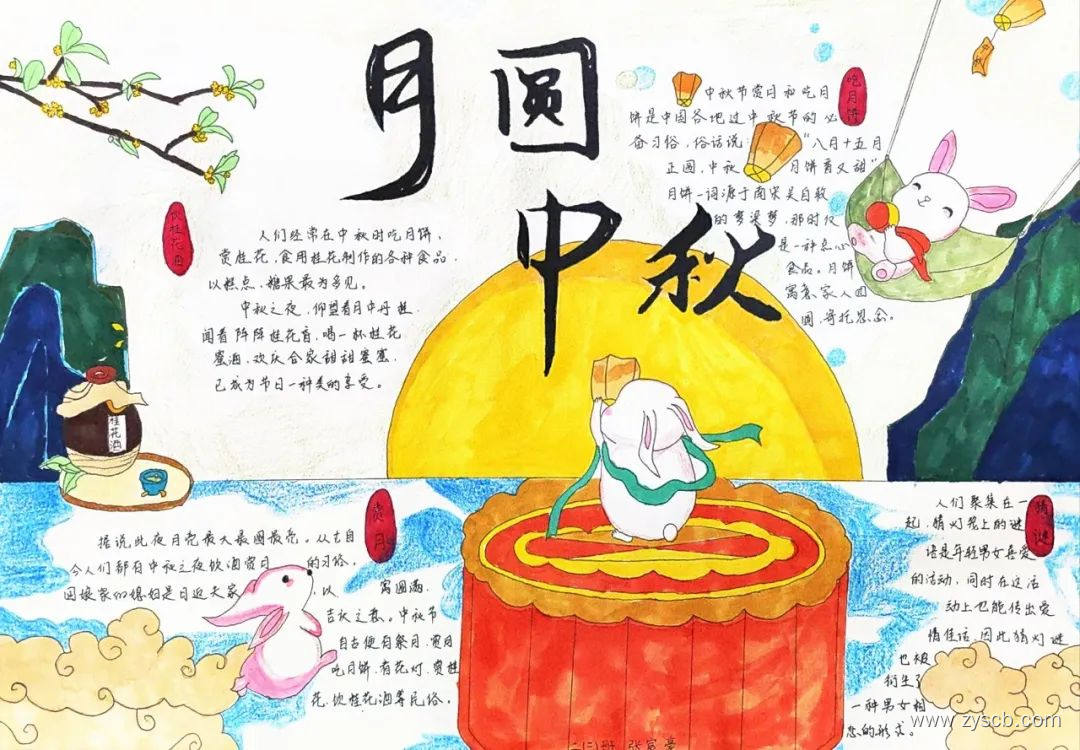 月圆
中秋
吃月饼
中秋节赏月和吃月
饼是中国各地过中秋节的必
备习俗，俗话说：“八月十五月
正圆，中秋月饼香又甜”
月饼一词源于南宋吴自牧
的梦梁梦，那时仅
是一种点心
食品。月饼
寓意家人团
圆，寄托思念。
中秋
饮桂花酒
人们经常在中秋时吃月饼，
赏桂花，食用桂花制作的各种食品，
以糕点、糖果最为多见。
中秋之夜，仰望着月中丹桂，
闻着阵阵桂花香，喝一杯桂花
蜜酒，欢庆合家甜甜蜜蜜，
已成为节日一种美的享受。
桂花酒
赏月
据说此夜月亮最大最圆最亮。从古自
今人们都有中秋之夜饮酒赏月的习俗，
回娘家的媳妇是日返夫家，以寓圆满、
吉庆之意。中秋节
自古便有祭月、赏月
吃月饼、有花灯、赏桂
花、饮桂花酒等民俗。
猜谜
人们聚集在一
起，猜灯笼上的谜
语是年轻男女喜爱
的活动，同时在这活
动上也能传出爱
情佳话，因此猜灯谜
也被
衍生了
一种男女相
恋的形式。
二(三)班 张富豪
www.zyscb.com